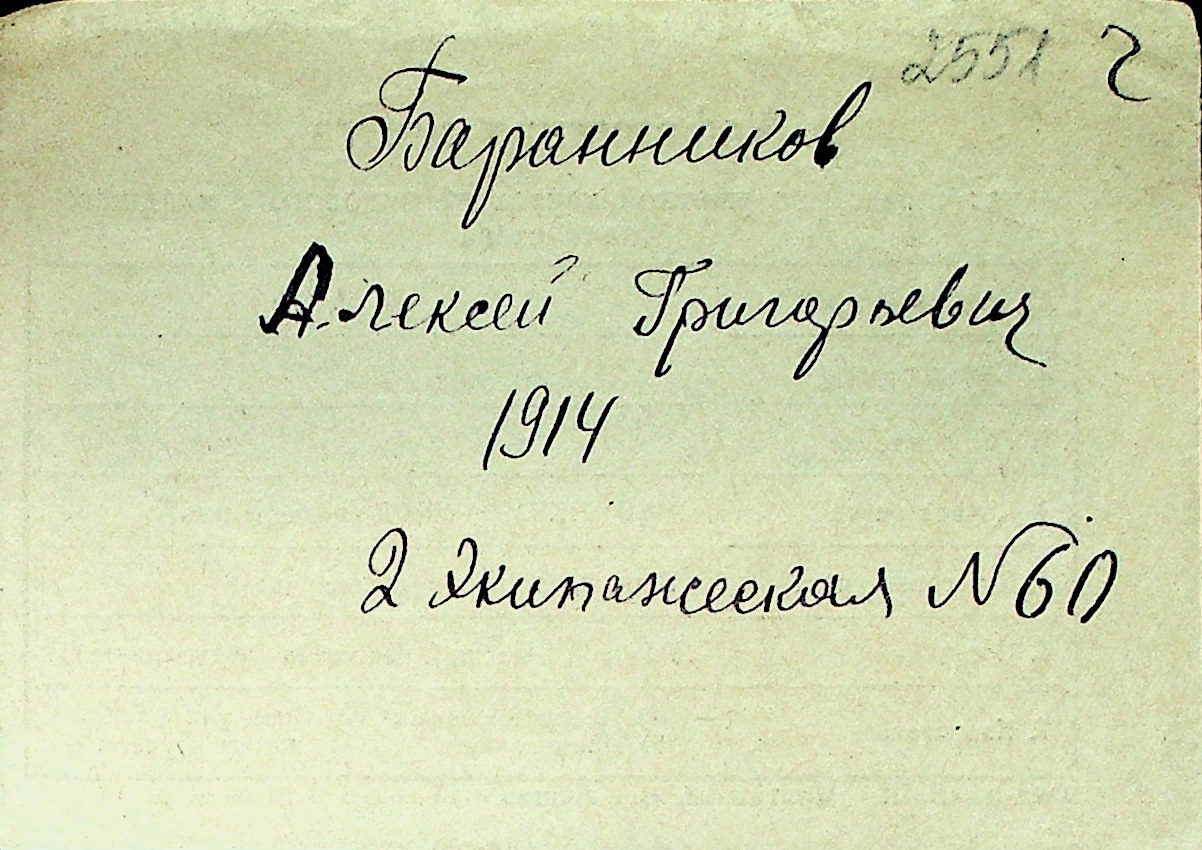 2551 2
Баранников
Алексей Григорьевич
1914
2 Экипажеская №60